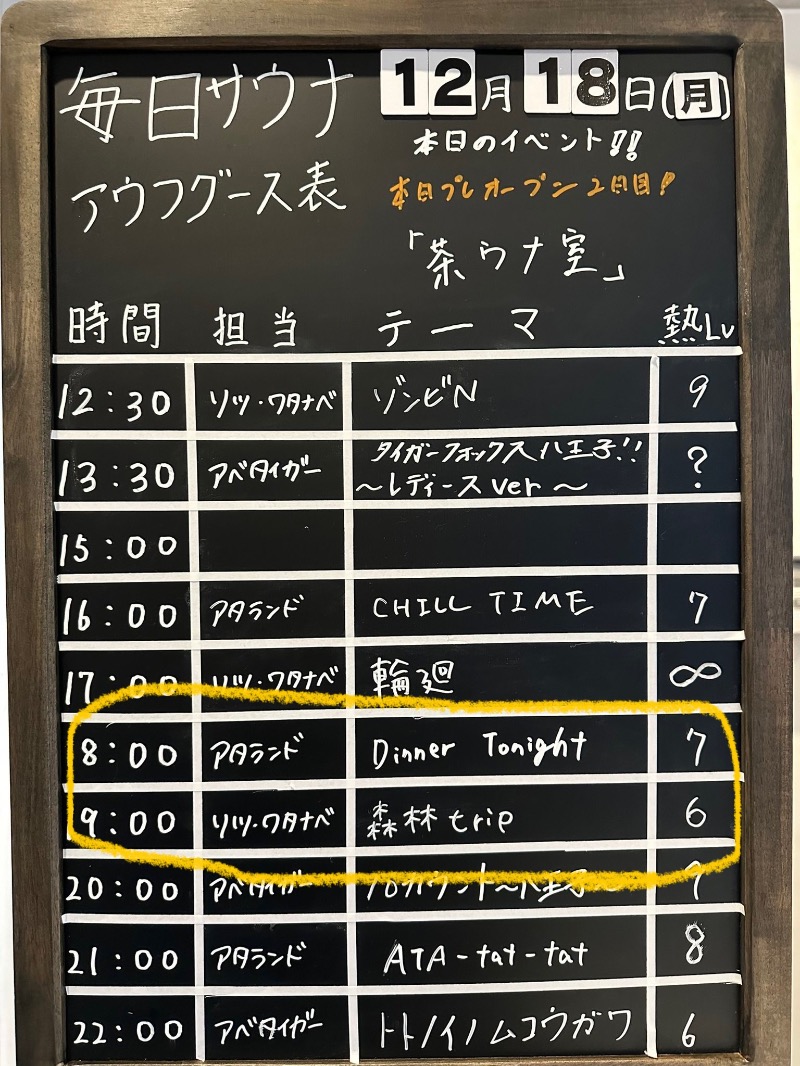 毎日サウナ 12月18日(月)
本日のイベント!!
アウフグース表 本日プレオープン2日目!
「茶ウナ室」
時間 担当 テーマ 熱Lv
12:30 リツ・ワタナベ ゾンビN 9
13:30 アベタイガー タイガーフォックス八王子!! ?
〜レディースver〜
15:00
16:00 アタランド CHILL TIME 7
17:00 リツ・ワタナベ 輪廻 ∞
8:00 アタランド Dinner Tonight 7
9:00 リツ・ワタナベ 森林trip 6
20:00 アベタイガー 10カウント〜八王子〜
21:00 アタランド ATA-tat-tat 8
22:00 アベタイガー トトノイノムコウガワ 6